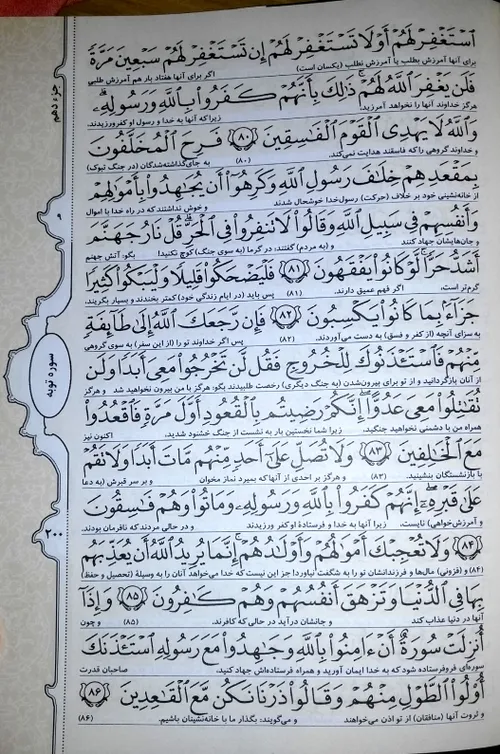 ٱسۡتَغۡفِرۡ لَهُمۡ أَوۡ لَا تَسۡتَغۡفِرۡ لَهُمۡ إِن تَسۡتَغۡفِرۡ لَهُمۡ سَبۡعِينَ مَرَّةٗ
برای آنها آمرزش بطلب یا آمرزش نطلب (یکسان است) اگر برای آنها هفتاد بار هم آمرزش طلبی
فَلَن يَغۡفِرَ ٱللَّهُ لَهُمۡۚ ذَٰلِكَ بِأَنَّهُمۡ كَفَرُواْ بِٱللَّهِ وَرَسُولِهِۦۗ
هرگز خداوند آنها را نخواهد آمرزید زیرا که آنها به خدا و رسول او کفر ورزیدند.
وَٱللَّهُ لَا يَهۡدِي ٱلۡقَوۡمَ ٱلۡفَٰسِقِينَ ٨٠ فَرِحَ ٱلۡمُخَلَّفُونَ
و خداوند گروهی را که فاسقند هدایت نمی‌کند. (۸۰) به جای گذاشته‌شدگان (در جنگ تبوک)
بِمَقۡعَدِهِمۡ خِلَٰفَ رَسُولِ ٱللَّهِ وَكَرِهُوٓاْ أَن يُجَٰهِدُواْ بِأَمۡوَٰلِهِمۡ
از خانه‌نشینی خود بر خلاف (حرکت) رسول خدا خوشحال شدند و خوش نداشتند که در راه خدا با اموال
وَأَنفُسِهِمۡ فِي سَبِيلِ ٱللَّهِ وَقَالُواْ لَا تَنفِرُواْ فِي ٱلۡحَرِّۗ قُلۡ نَارُ جَهَنَّمَ
و جان‌هایشان جهاد کنند و (به مردم) گفتند: در گرما (به سوی جنگ) کوچ نکنید! بگو: آتش جهنم
أَشَدُّ حَرّٗاۚ لَّوۡ كَانُواْ يَفۡقَهُونَ ٨١ فَلۡيَضۡحَكُواْ قَلِيلٗا وَلۡيَبۡكُواْ كَثِيرٗا
گرم‌تر است، اگر فهم عمیق دارند. (۸۱) پس باید (در ایام زندگی خود) کمتر بخندند و بسیار بگریند.
جَزَآءَۢ بِمَا كَانُواْ يَكۡسِبُونَ ٨٢ فَإِن رَّجَعَكَ ٱللَّهُ إِلَىٰ طَآئِفَةٖ
به سزای آنچه (از کفر و فسق) به دست می‌آوردند. (۸۲) پس اگر خداوند تو را (از این سفر) به سوی گروهی
مِّنۡهُمۡ فَٱسۡتَـٔۡذَنُوكَ لِلۡخُرُوجِ فَقُل لَّن تَخۡرُجُواْ مَعِيَ أَبَدٗا وَلَن
از آنان بازگردانید و از تو برای بیرون‌شدن (به جنگ دیگری) رخصت طلبیدند بگو: هرگز با من بیرون نخواهید شد و هرگز
تُقَٰتِلُواْ مَعِيَ عَدُوًّاۖ إِنَّكُمۡ رَضِيتُم بِٱلۡقُعُودِ أَوَّلَ مَرَّةٖ فَٱقۡعُدُواْ
همراه من با دشمنی نخواهید جنگید. زیرا شما نخستین بار به نشست از جنگ خشنود شدید. اکنون نیز
مَعَ ٱلۡخَٰلِفِينَ ٨٣ وَلَا تُصَلِّ عَلَىٰٓ أَحَدٖ مِّنۡهُم مَّاتَ أَبَدٗا وَلَا تَقُمۡ
با بازنشستگان بنشینید. (۸۳) و هرگز بر احدی از آنها که بمیرد نماز مخوان و بر سر قبرش (به دعا
عَلَىٰ قَبۡرِهِۦٓۖ إِنَّهُمۡ كَفَرُواْ بِٱللَّهِ وَرَسُولِهِۦ وَمَاتُواْ وَهُمۡ فَٰسِقُونَ
و آمرزش‌خواهی) نایست، زیرا آنها به خدا و فرستادهٔ او کفر ورزیدند و در حالی مردند که نافرمان بودند.
٨٤ وَلَا تُعۡجِبۡكَ أَمۡوَٰلُهُمۡ وَأَوۡلَٰدُهُمۡۚ إِنَّمَا يُرِيدُ ٱللَّهُ أَن يُعَذِّبَهُم
(۸۴) و (فزونی) مال‌ها و فرزندانشان تو را به شگفت نیاورد! جز این نیست که خدا می‌خواهد آنان را به وسیلهٔ (تحصیل و حفظ)
بِهَا فِي ٱلدُّنۡيَا وَتَزۡهَقَ أَنفُسُهُمۡ وَهُمۡ كَٰفِرُونَ ٨٥ وَإِذَآ
آنها در دنیا عذاب کند و جانشان درآید در حالی که کافرند. (۸۵) و چون
أُنزِلَتۡ سُورَةٌ أَنۡ ءَامِنُواْ بِٱللَّهِ وَجَٰهِدُواْ مَعَ رَسُولِهِ ٱسۡتَـٔۡذَنَكَ
سوره‌ای فروفرستاده شود که به خدا ایمان آورید و همراه فرستاده‌اش جهاد کنید. صاحبان قدرت
أُوْلُواْ ٱلطَّوۡلِ مِنۡهُمۡ وَقَالُواْ ذَرۡنَا نَكُن مَّعَ ٱلۡقَٰعِدِينَ ٨٦
و ثروت آنها (منافقان) از تو اذن می‌خواهند و می‌گویند: بگذار ما با خانه‌نشینان باشیم. (۸۶)
جزء دهم
سوره توبه
۲۰۰